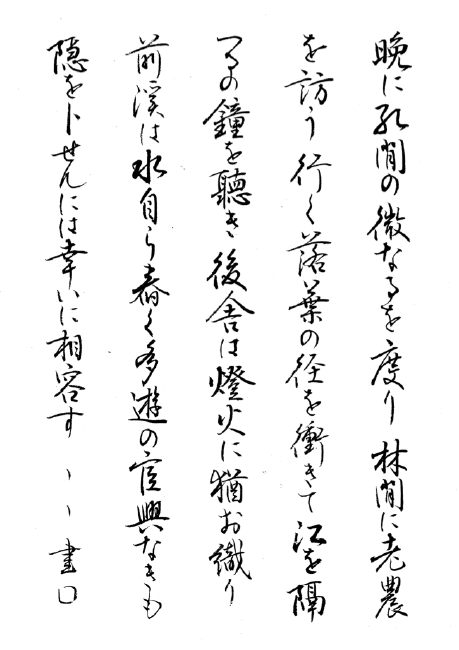 晩に孔間の微なるを度り林間に老農
を訪う行く落葉の径を衝きて江を隔
つるの鐘を聴き後舎は燈火に猶お織り
前渓は水自ら舂く多遊の宦興なきも
隠を卜せんには幸いに相容す 、、書□